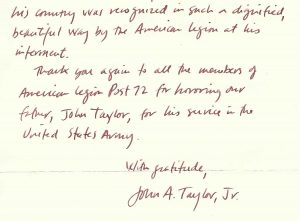 his country was recognized in such a dignified,
beautiful way by the American legion at his
interment.
Thank you again to all the members of
American legion Post 72 for honoring our
father, John Taylor, for his service in the
United States Army.
With gratitude,
John A. Taylor, Jr.